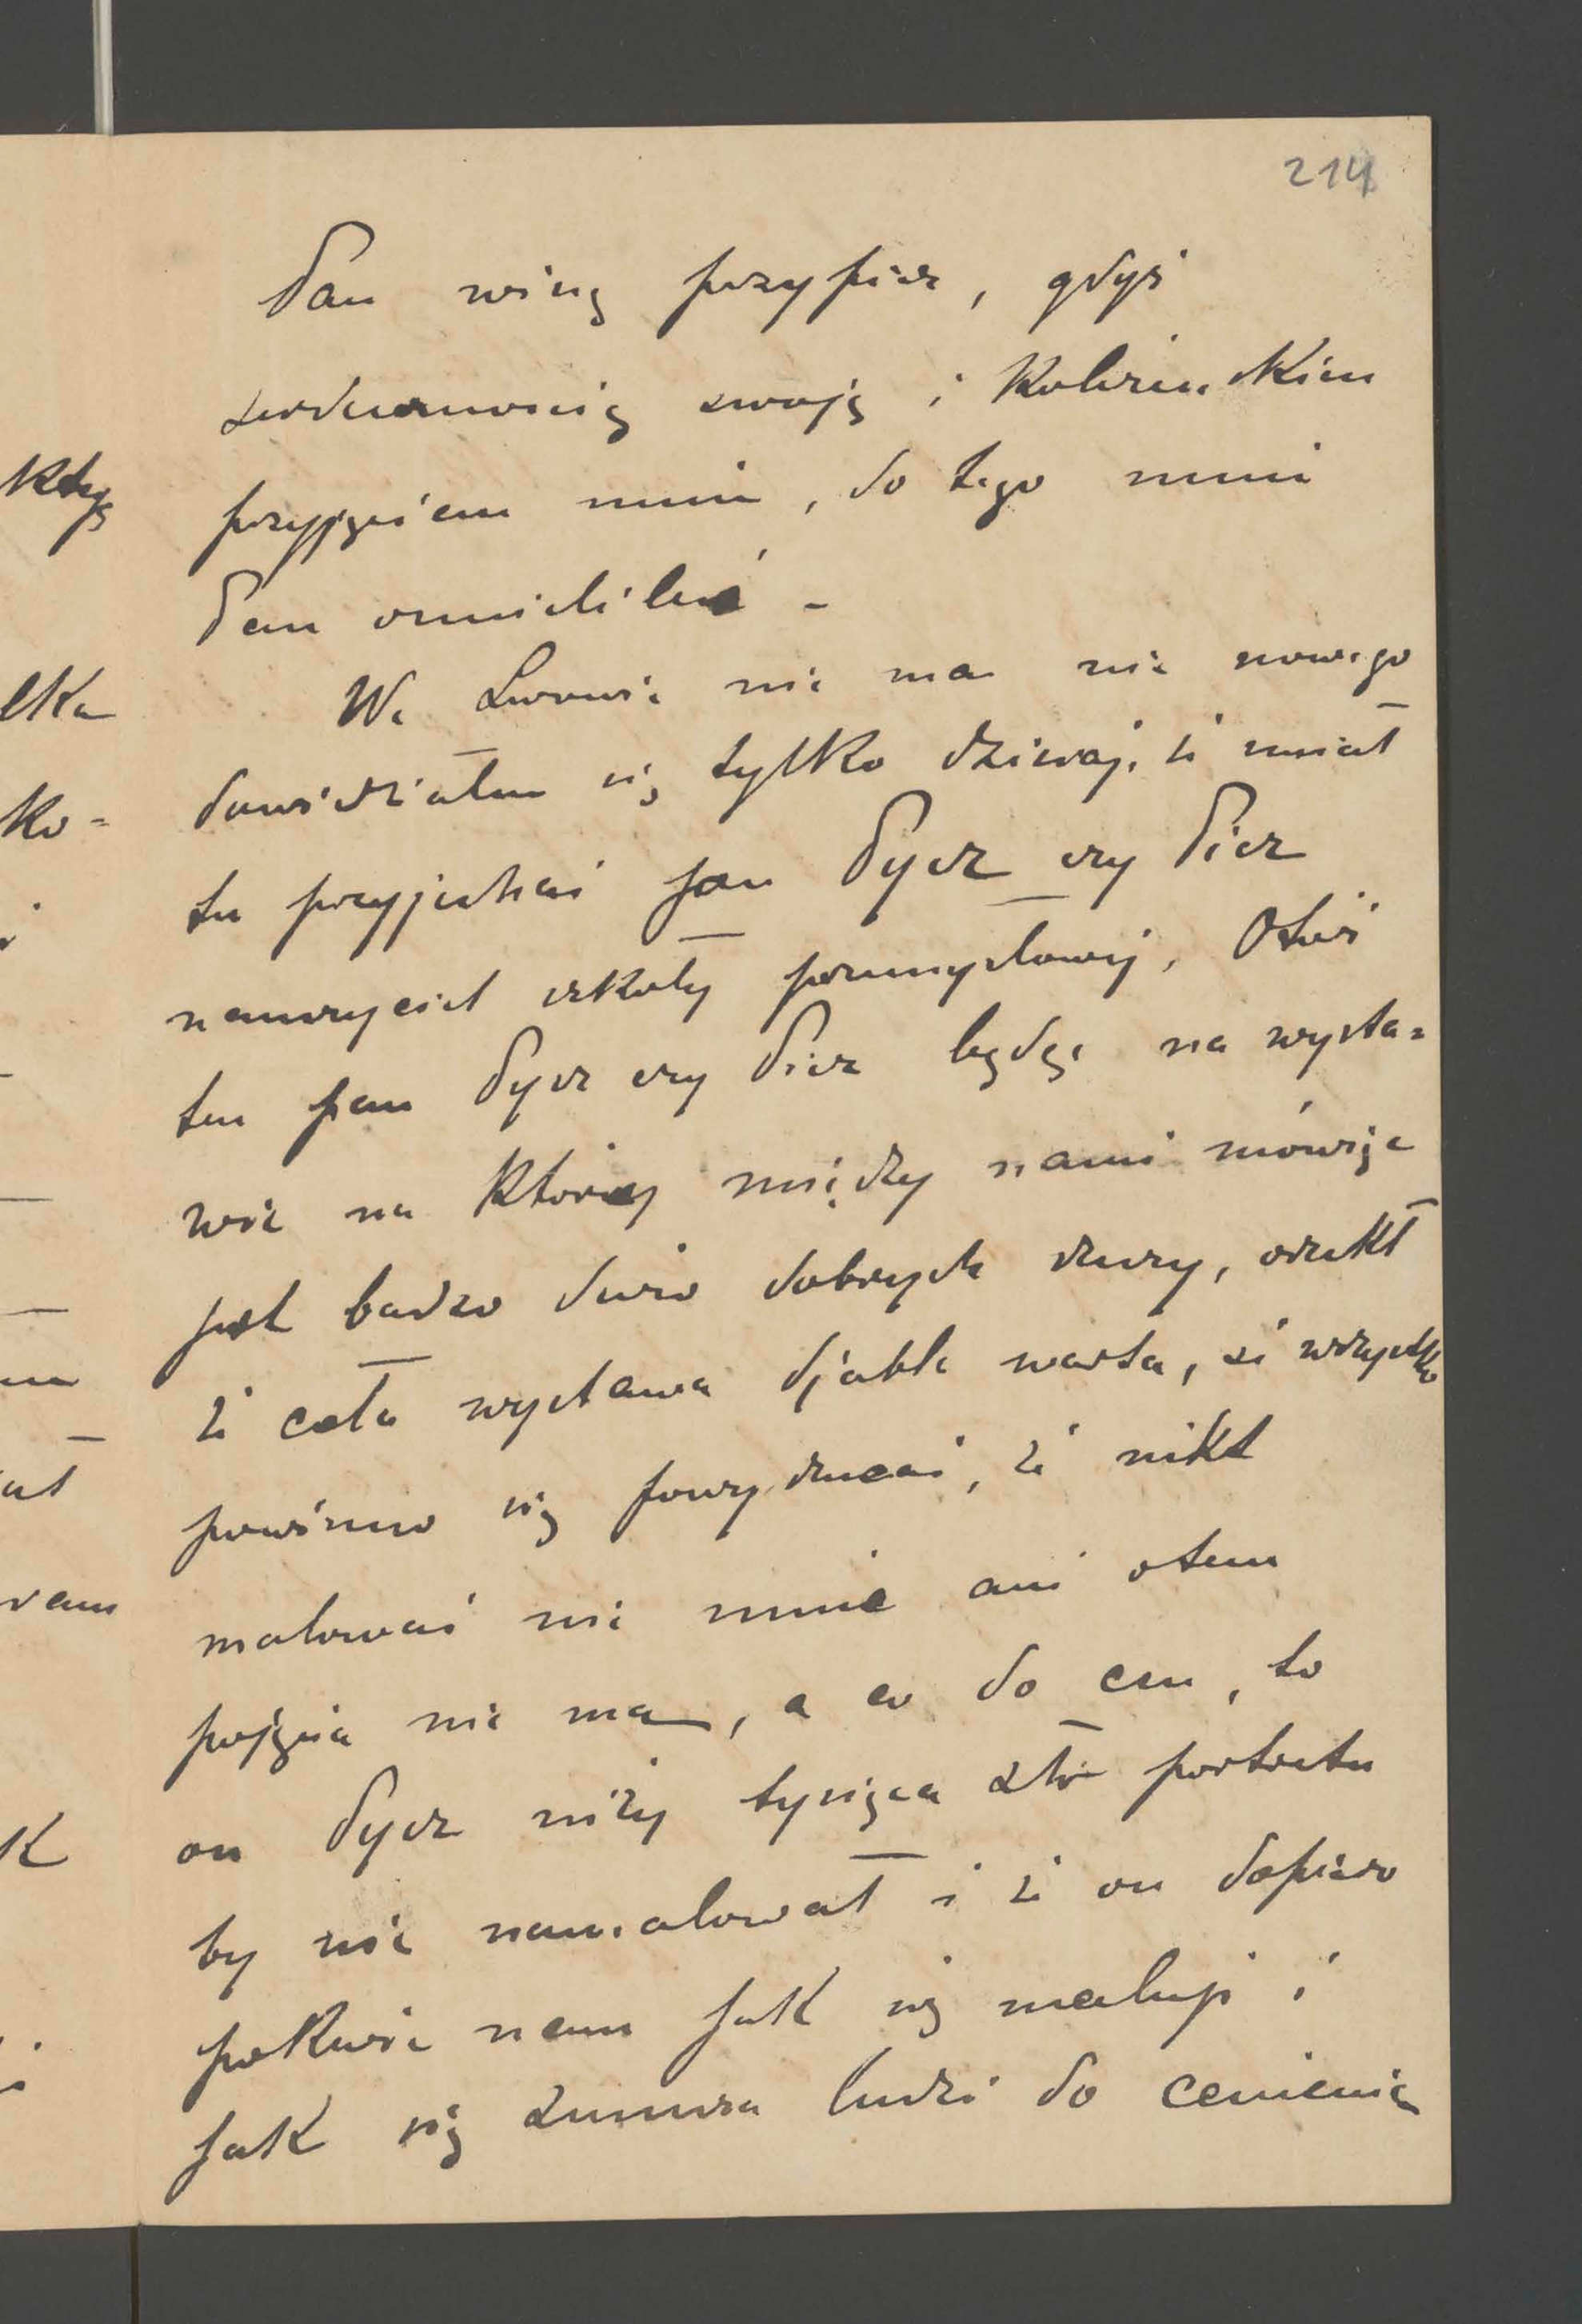 214
Pan winę przypisz, gdyż
serdecznością swoją i
przyjęciem mnie, do tego mnie
Pan ośmielileś –
We Lwowie nie ma nic nowego
dowiedziałem się tylko dzisiaj, że miał
tu przyjechać pan Pycz czy Picz
nauczyciel szkoły przemysłowej, Otóż
ten pan Pycz czy Picz będąc na wysta=
wie na której między nami mówiąc
jest bardzo dużo dobrych rzeczy, orzekł
że cała wystawa djabła warta, że wszystko
powinno się powyrzucać, że nikt
malować nie umie ani otem
pojęcia nie ma, a co do cen, to
on Pycz niżej tysiąca złr portretu
by nie namalował i że on dopiero
pokaże nam jak się maluje i
jak się zmusza ludzi do cenienia
któŋ
lka
ko=